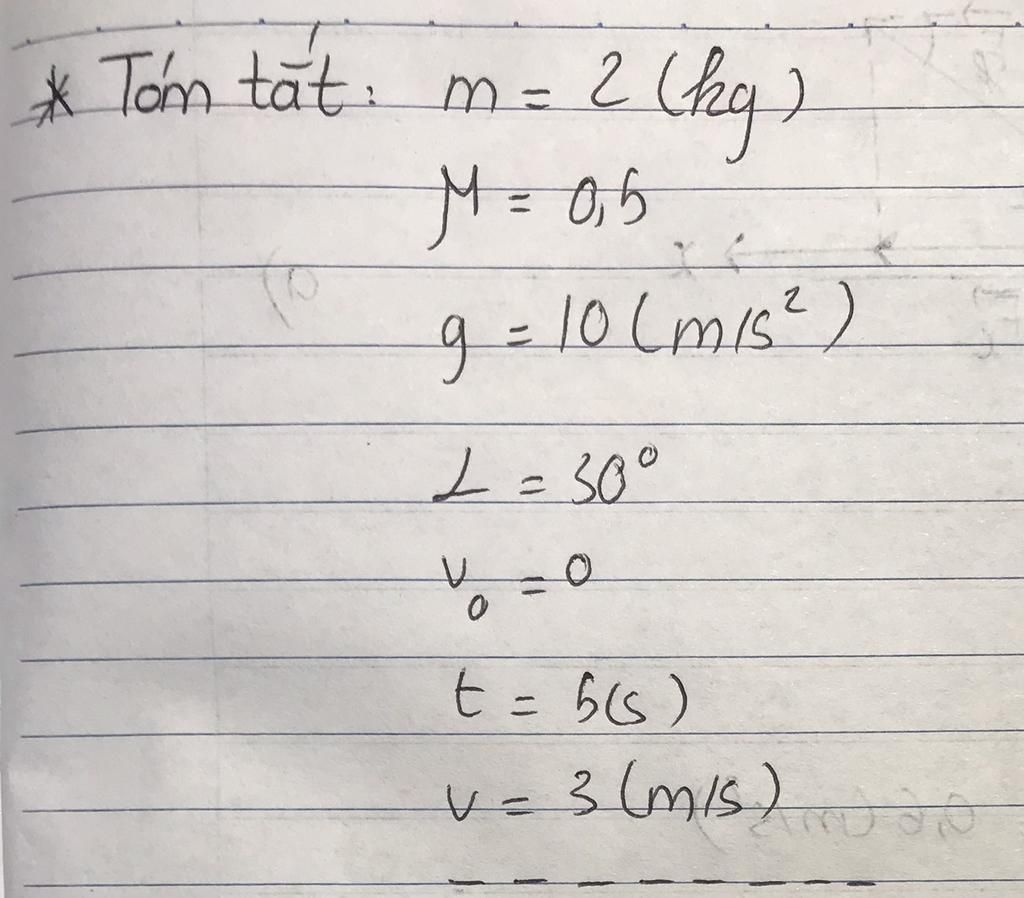 * Tóm tắt: m = 2 (kg)
μ = 0,5
g = 10 (m/s²)
α = 30°
v₀ = 0
t = 5(s)
v = 3 (m/s)